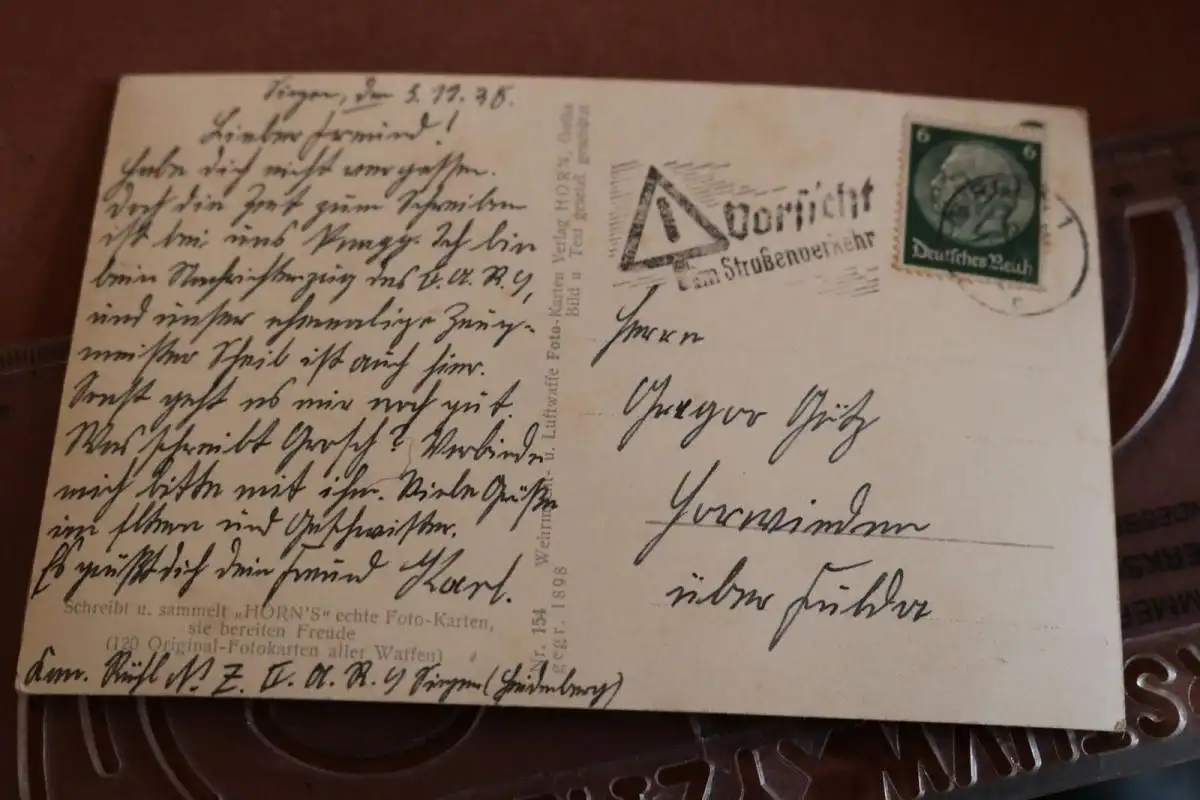 Siegen, den 5.11.38.
Lieber Freund!
Habe dich nicht vergessen.
Doch die Zeit zum Schreiben
ist bei uns knapp. Ich bin
beim Nachrichtenzug des A. R. 9,
und unser ehemalige Zeug-
meister Scheib ist auch hier.
Sonst geht es mir noch gut.
Was schreibt Grosch? Verbinde
mich bitte mit ihm. Viele Grüße
an Eltern und Geschwister.
Es grüßt dich dein Freund Karl.
Schreibt u. sammelt „HORN'S“ echte Foto-Karten,
sie bereiten Freude
(120 Original-Fotokarten aller Waffen)
Kan. Rühl N. Z. II. A. R. 9 Siegen (Heidenberg)
Nr. 154 Wehrmacht- u. Luftwaffe Foto-Karten Verlag HORN, Gotha
gegr. 1898 Bild u Text gesetzl. geschützt
Vorsicht
im Straßenverkehr
6 6
Deutsches Reich
Herrn
Gregor Götz
Horwieden
über Fulda